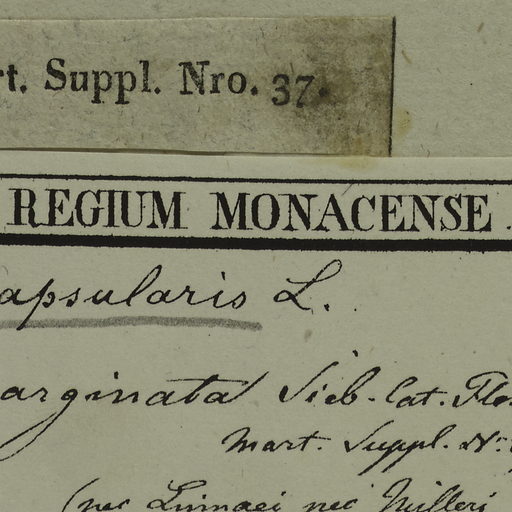 rt. Suppl. Nro. 37.
REGIUM MONACENSE.
apsularis L.
arginata Sieb. Cat. Flo
Mart. Suppl. N.
(nec Linnaei nec Milleri